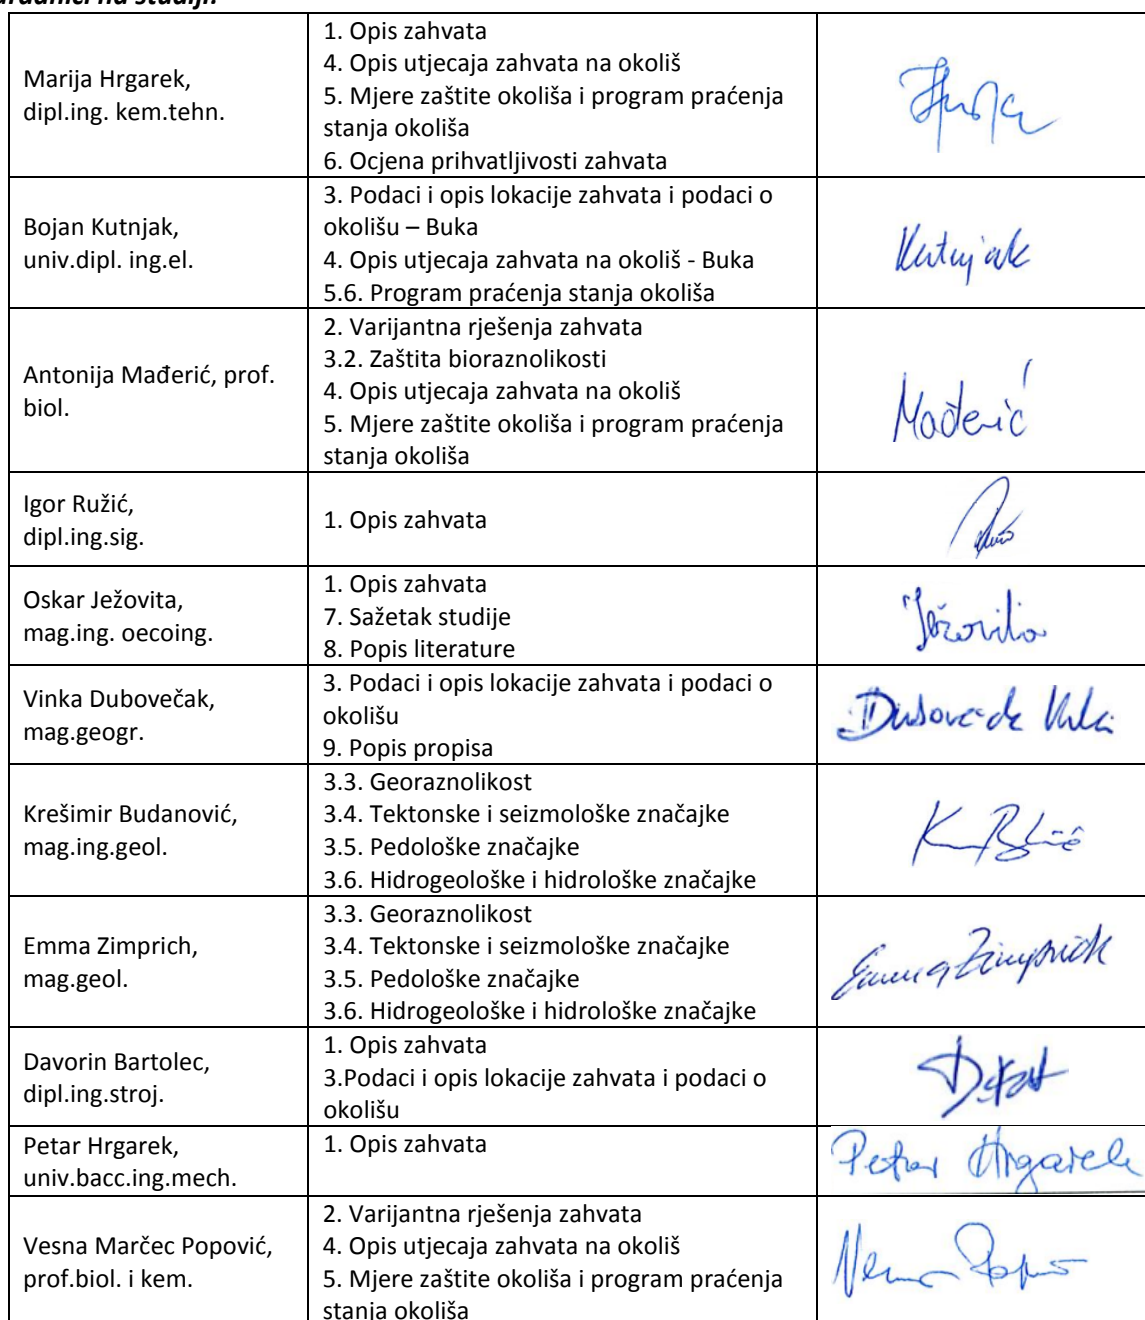 na studiji:
Marija Hrgarek,
dipl.ing. kem.tehn.
1. Opis zahvata
4. Opis utjecaja zahvata na okoliš
5. Mjere zaštite okoliša i program praćenja
stanja okoliša
6. Ocjena prihvatljivosti zahvata
Bojan Kutnjak,
univ.dipl. ing.el.
3. Podaci i opis lokacije zahvata i podaci o
okolišu – Buka
4. Opis utjecaja zahvata na okoliš - Buka
5.6. Program praćenja stanja okoliša
Kutnjak
Antonija Mađerić, prof.
biol.
2. Varijantna rješenja zahvata
3.2. Zaštita bioraznolikosti
4. Opis utjecaja zahvata na okoliš
5. Mjere zaštite okoliša i program praćenja
stanja okoliša
Mađerić
Igor Ružić,
dipl.ing.sig.
1. Opis zahvata
Oskar Ježovita,
mag.ing. oecoing.
1. Opis zahvata
7. Sažetak studije
8. Popis literature
Ježovita
Vinka Dubovečak,
mag.geogr.
3. Podaci i opis lokacije zahvata i podaci o
okolišu
9. Popis propisa
Krešimir Budanović,
mag.ing.geol.
3.3. Georaznolikost
3.4. Tektonske i seizmološke značajke
3.5. Pedološke značajke
3.6. Hidrogeološke i hidrološke značajke
Emma Zimprich,
mag.geol.
3.3. Georaznolikost
3.4. Tektonske i seizmološke značajke
3.5. Pedološke značajke
3.6. Hidrogeološke i hidrološke značajke
Emma Zimprich
Davorin Bartolec,
dipl.ing.stroj.
1. Opis zahvata
3.Podaci i opis lokacije zahvata i podaci o
okolišu
Petar Hrgarek,
univ.bacc.ing.mech.
1. Opis zahvata
Petar Hrgarek
Vesna Marčec Popović,
prof.biol. i kem.
2. Varijantna rješenja zahvata
4. Opis utjecaja zahvata na okoliš
5. Mjere zaštite okoliša i program praćenja
stanja okoliša